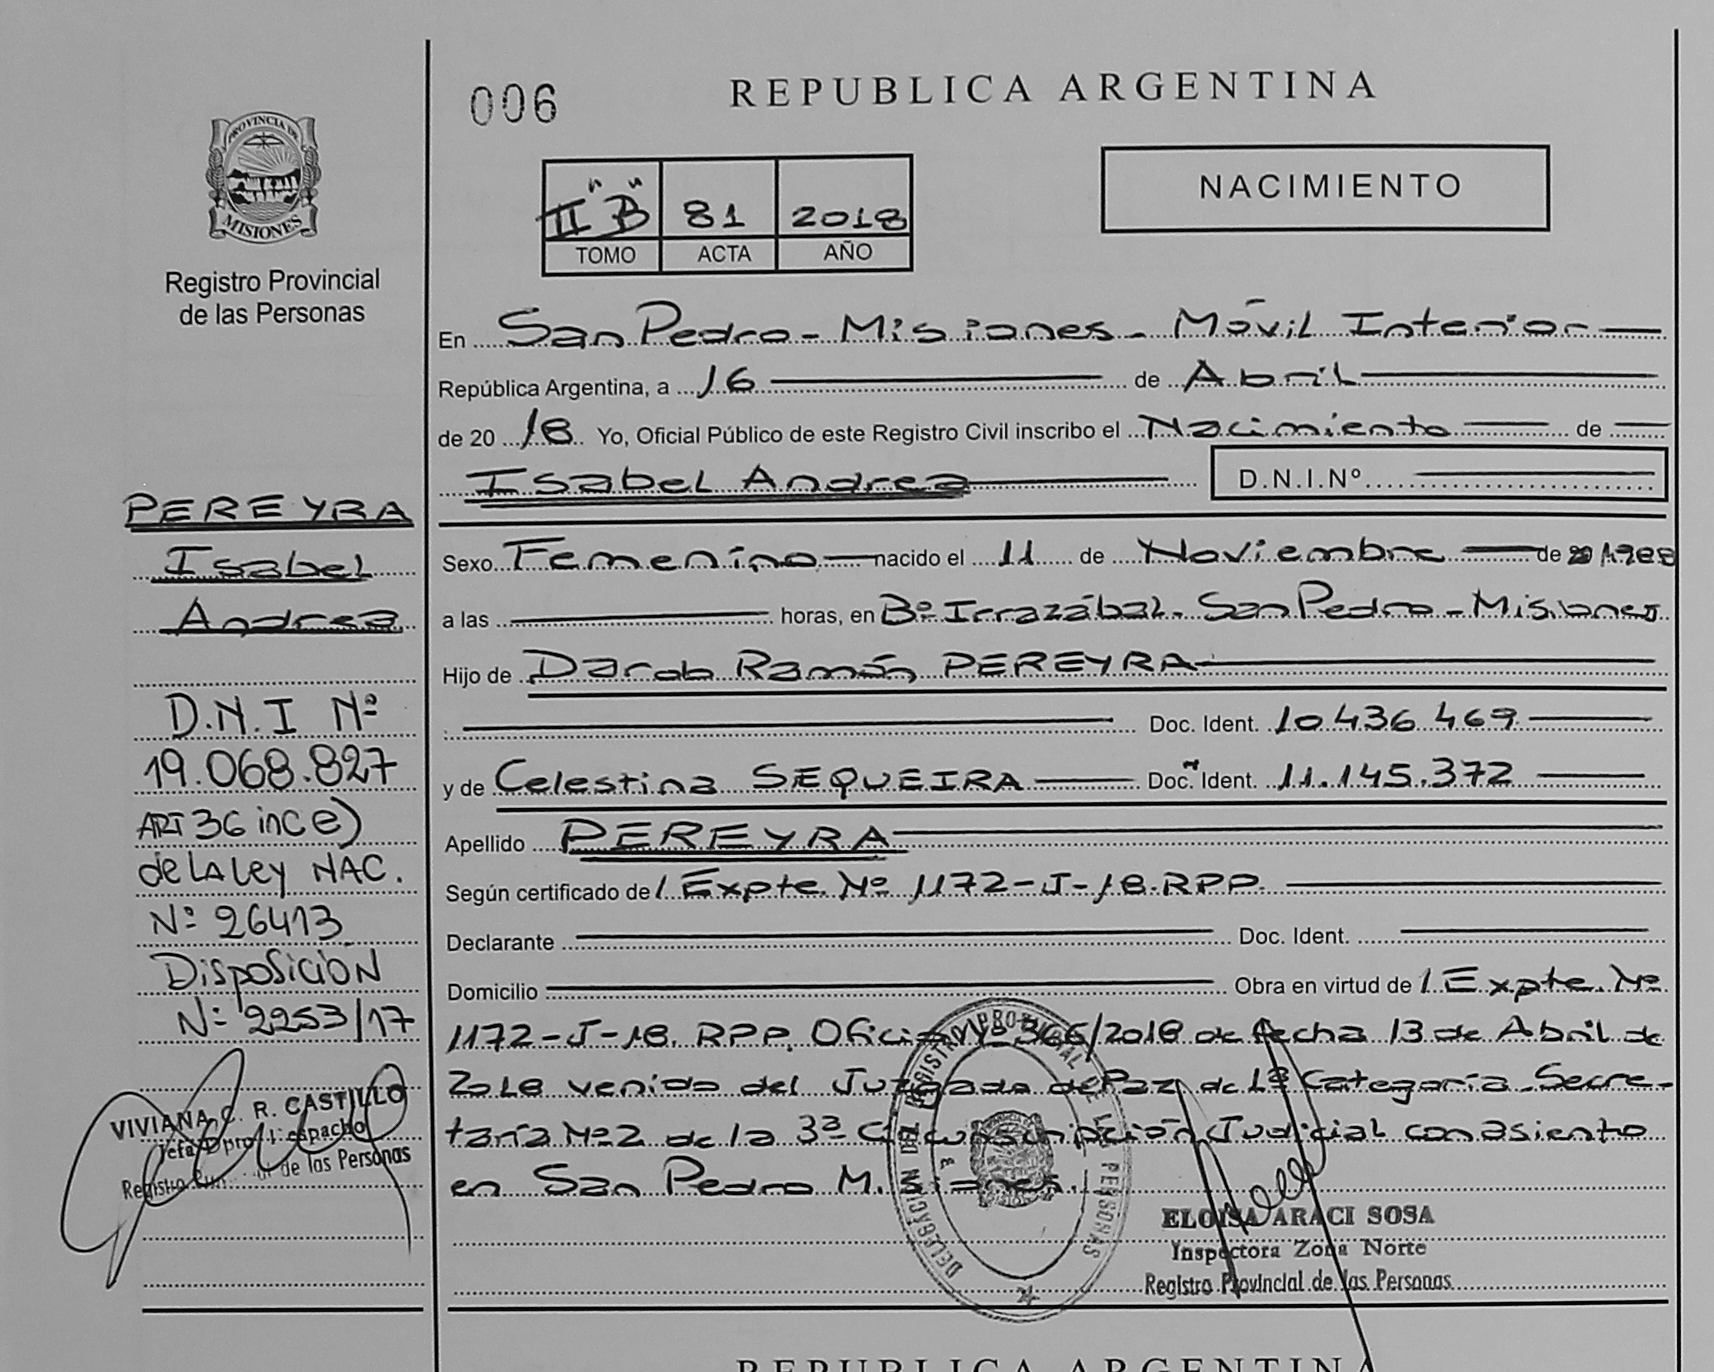 006
REPUBLICA ARGENTINA
PROVINCIA DE
MISIONES
Registro Provincial
de las Personas
II "B" 81 2018
TOMO ACTA AÑO
NACIMIENTO
En San Pedro - Misiones - Móvil Interior
República Argentina, a 16 de Abril
de 20 18 Yo, Oficial Público de este Registro Civil inscribo el Nacimiento de
Isabel Andrea D.N.I.Nº
Sexo Femenino nacido el 11 de Noviembre de 1988
a las horas, en Bº Irrazábal - San Pedro - Misiones
Hijo de Ramón PEREYRA
Doc. Ident. 10.436.469
y de Celestina SEQUEIRA Doc. Ident. 11.145.372
Apellido PEREYRA
Según certificado de / Expte. Nº 1172-J-18.RPP.
Declarante Doc. Ident.
Domicilio Obra en virtud de / Expte. Nº
1172-J-18. RPP. Oficio Nº 366/2018 de fecha 13 de Abril de
2018 venido del Juzgado de Paz de 1ª Categoría Secre-
taría Nº2 de la 3ª Circunscripción Judicial con asiento
en San Pedro Misiones.
PEREYRA
Isabel
Andrea
D.N.I Nº
19.068.827
ART 36 inc e)
de LA Ley NAC.
Nº 26413
Disposición
Nº 2253/17
VIVIANA C. R. CASTILLO
Jefa Dpto.
de las Personas
DELEGACIÓN DEL REGISTRO PROVINCIAL DE LAS PERSONAS
ELOISA ARACI SOSA
Inspectora Zona Norte
Registro Provincial de las Personas
REPUBLICA ARGENTINA